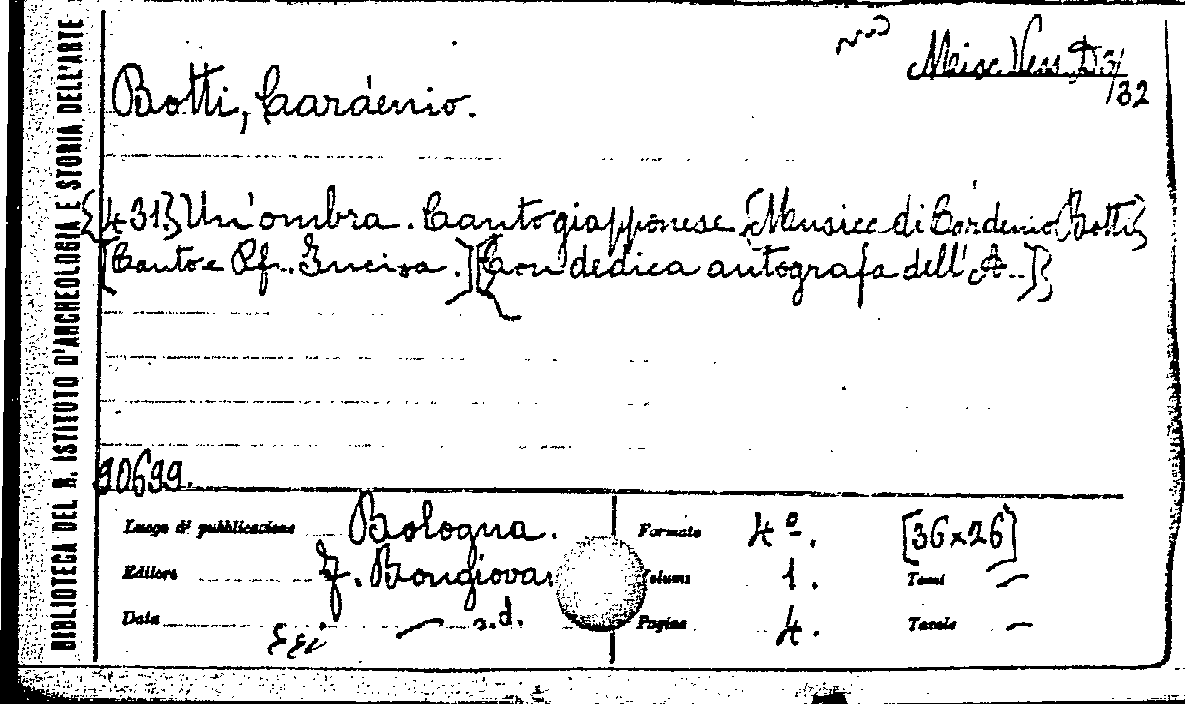 BIBLIOTECA DEL R. ISTITUTO D'ARCHEOLOGIA E STORIA DELL'ARTE
Misc. Vess. D3/
32
Botti, Cardenio.
{431} Un'ombra. Canto giapponese. [Musica di Cardenio Botti]
[Canto e Pf. Incisa.] [Con dedica autografa dell'A.]}
90699.
Luogo di pubblicazione Bologna.
Editore F. Bongiova
Data s.d.
Formato 4º. [36x26]
Volumi 1. Tomi —
Pagine 4. Tavole —